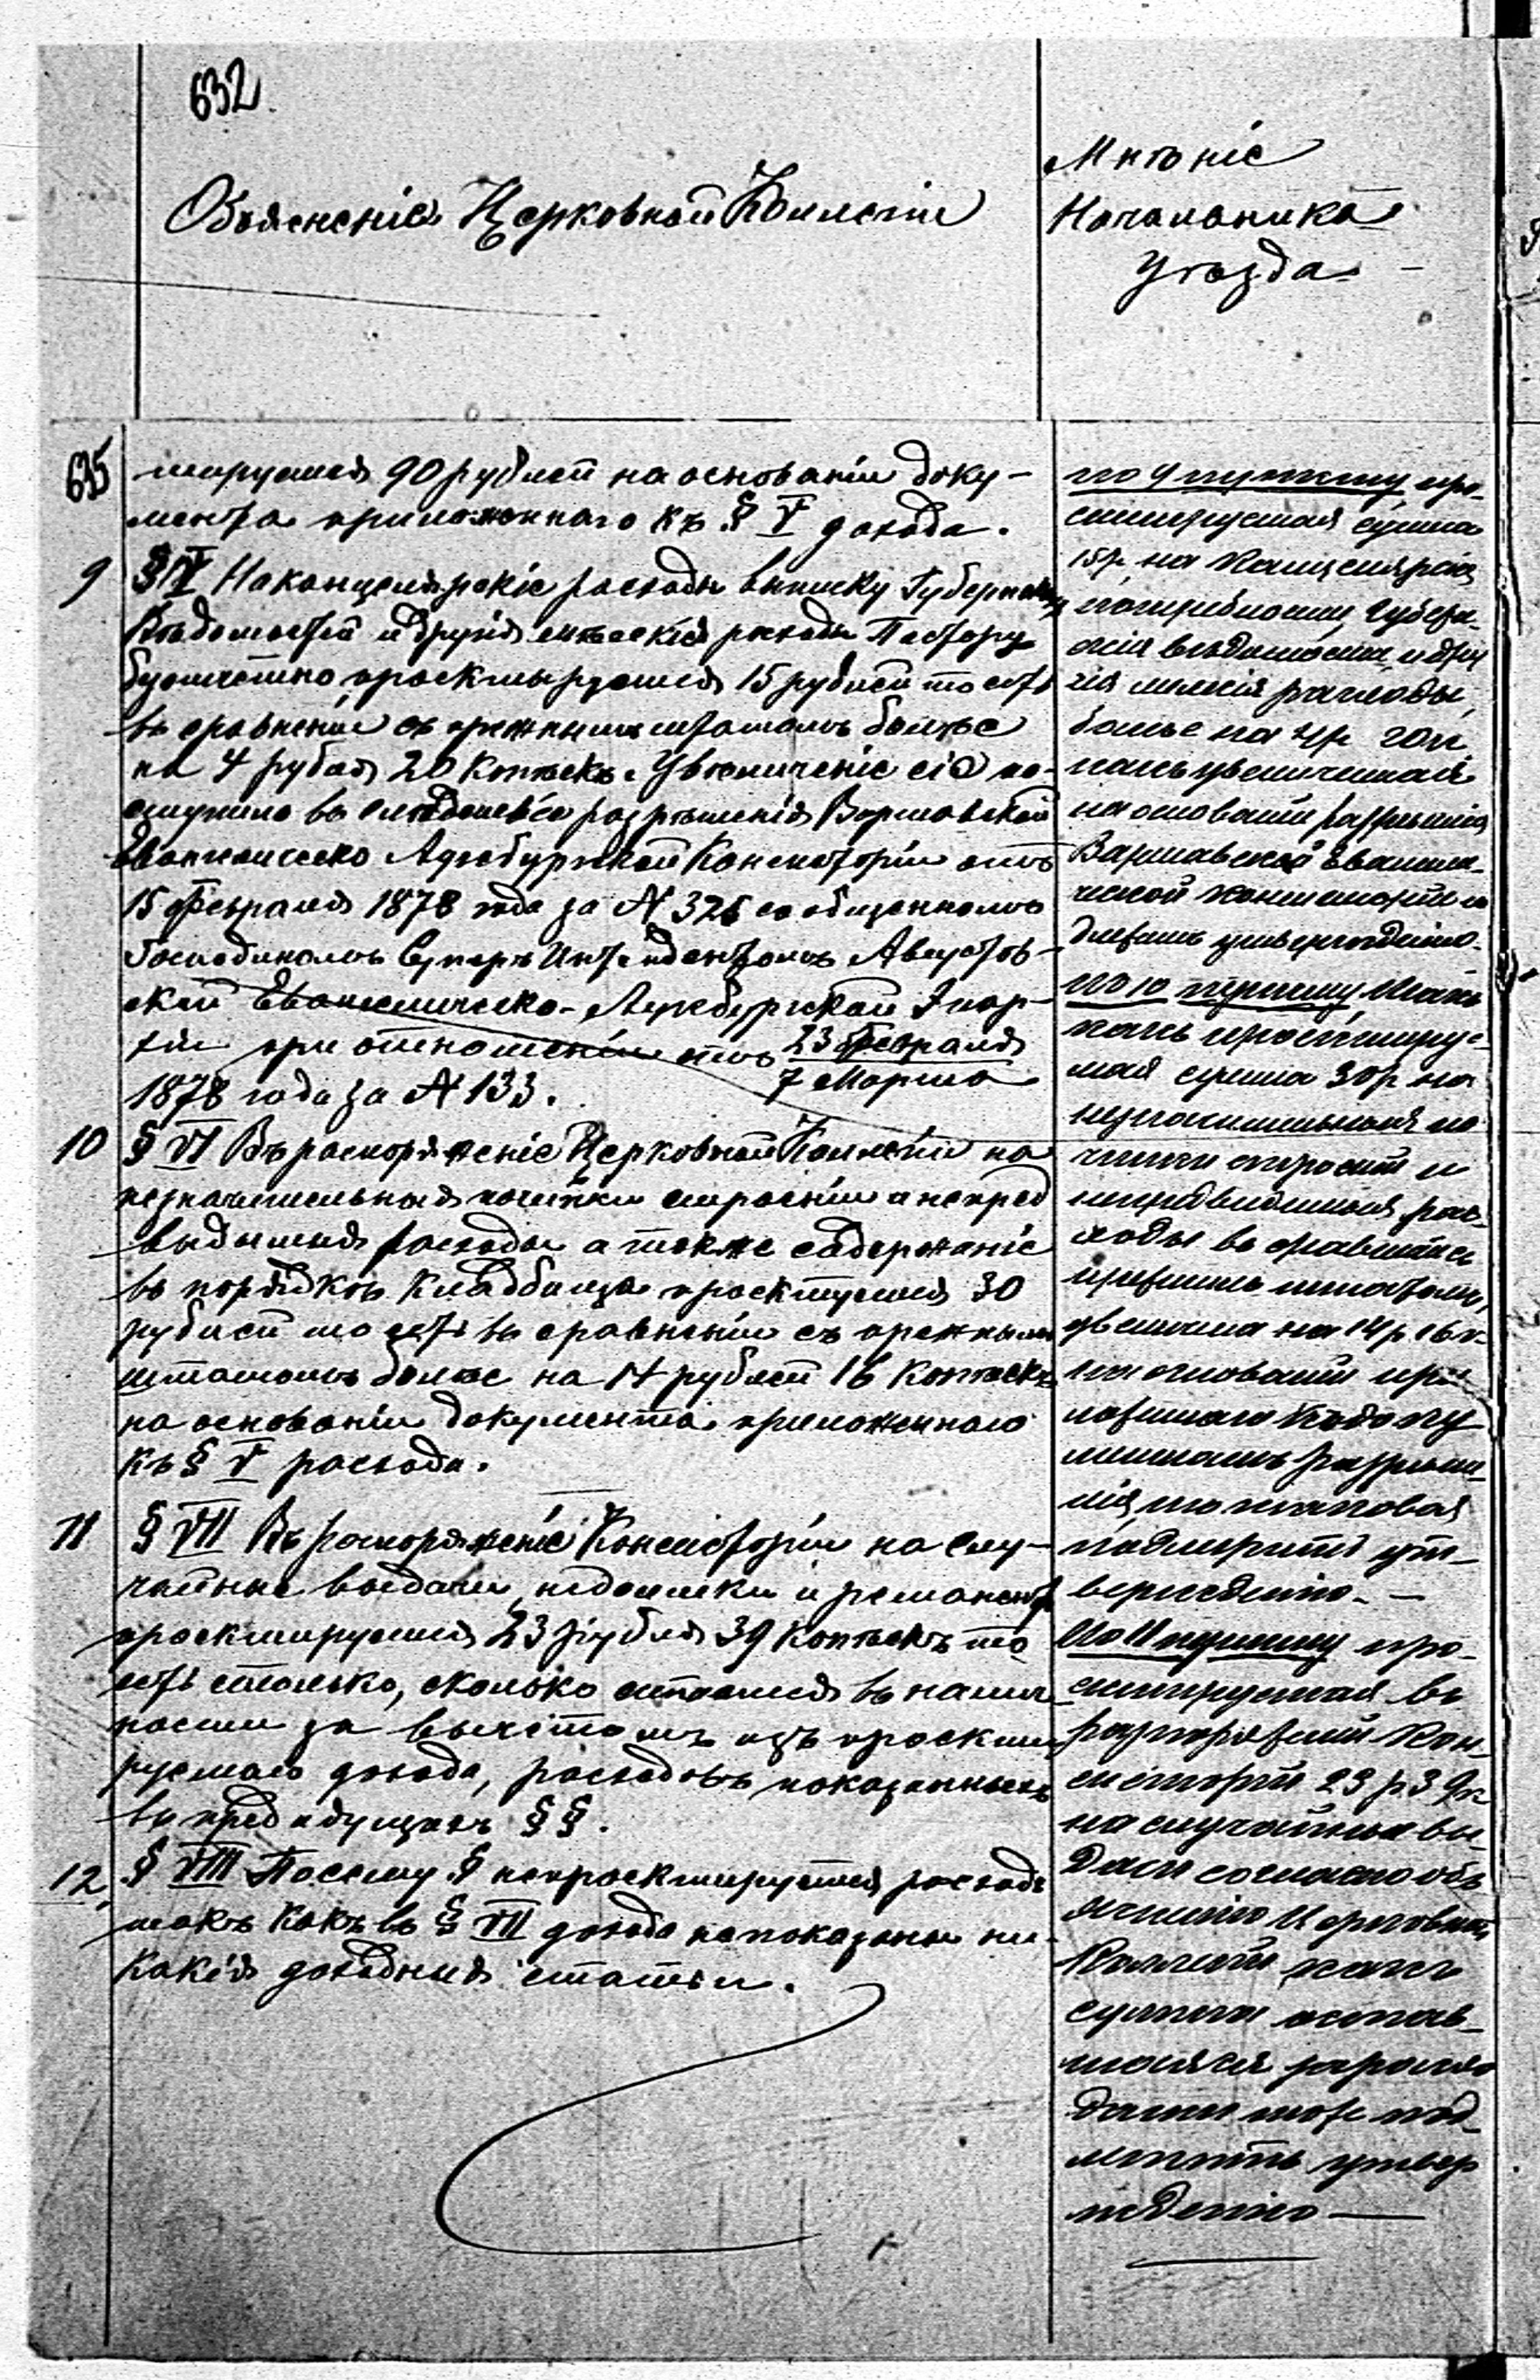 632
Объясненіе Церковной Коллегіи
Мнѣніе
Начальника
Уѣзда
635
тируется 90 рублей на основаніи доку-
мента приложеннаго къ § V дохода.
9 § IV На канцелярскіе расходы выписку Губернскихъ
Вѣдомостей и другія мелкія расходы Пастору
безотчетно проектируется 15 рублей то есть
въ сравненіи съ прежнимъ штатомъ болѣе
на 4 рубля 20 копѣекъ. Увеличеніе сіе по-
слѣдовало въ слѣдствіе разрѣшенія Варшавской
Евангелическо Аугсбургской Консисторіи отъ
15 Февраля 1878 года за № 326 сообщеннымъ
Господиномъ Суперъ Интендентомъ Августов-
ской Евангелическо-Аугсбургской Епар-
хіи при отношеніи отъ 23 Февраля
7 Марта
1878 года за № 133.
10 § VI Въ распоряженіе Церковной Коллегіи на
незначительныя починки строеніи и непред
видимыя расходы а также содержаніе
въ порядкѣ кладбища проектуемыя 30
рублей то есть въ сравненіи съ прежнымъ
штатомъ болѣе на 14 рублей 16 копѣекъ
на основаніи документа приложеннаго
къ § V расхода.
11 § VII Въ распоряженіе Консисторіи на слу-
чайные выдачи, недоимки и ремонентъ
проектируется 23 рубля 39 копѣекъ то
есть столько, сколько остается въ налич
ности за вычетомъ изъ проекти
руемаго дохода, расходовъ показанныхъ
въ предидущихъ §§.
12 § VIII По сему § непроектируется расходъ
такъ какъ въ § VII дохода не показаны ни-
какія доходныя статьи.
по 9 пункту про-
ектируемая сумма
15 р. на канцелярскія
потребности, Губерн-
скія вѣдомости и дру
гія мелкія расходы,
болѣе на 4 р. 20 к.
какъ увеличенная
на основаніи разрѣшенія
Варшавской Евангели-
ческой Консисторіи по
длежитъ утвержденію.
По 10 пункту такъ
какъ проектируе-
мая сумма 30 р. на
незначительныя по
чинки строеній и
непредвидимыя рас-
ходы въ сравненіи
прежнимъ штатомъ,
увеличена на 14 р. 16 к.
на основаніи при
ложеннаго
разрѣше-
нія, то таковая
подлежитъ ут-
вержденію. —
По 11 пункту про-
ектируемая въ
распоряженіи Кон-
систоріи 23 р. 39 к.
на случайныя вы-
дачи согласно объ
ясненію Церковной
Коллегіи какъ
сумма остав-
шаяся
тоже под-
лежитъ утвер
жденію —